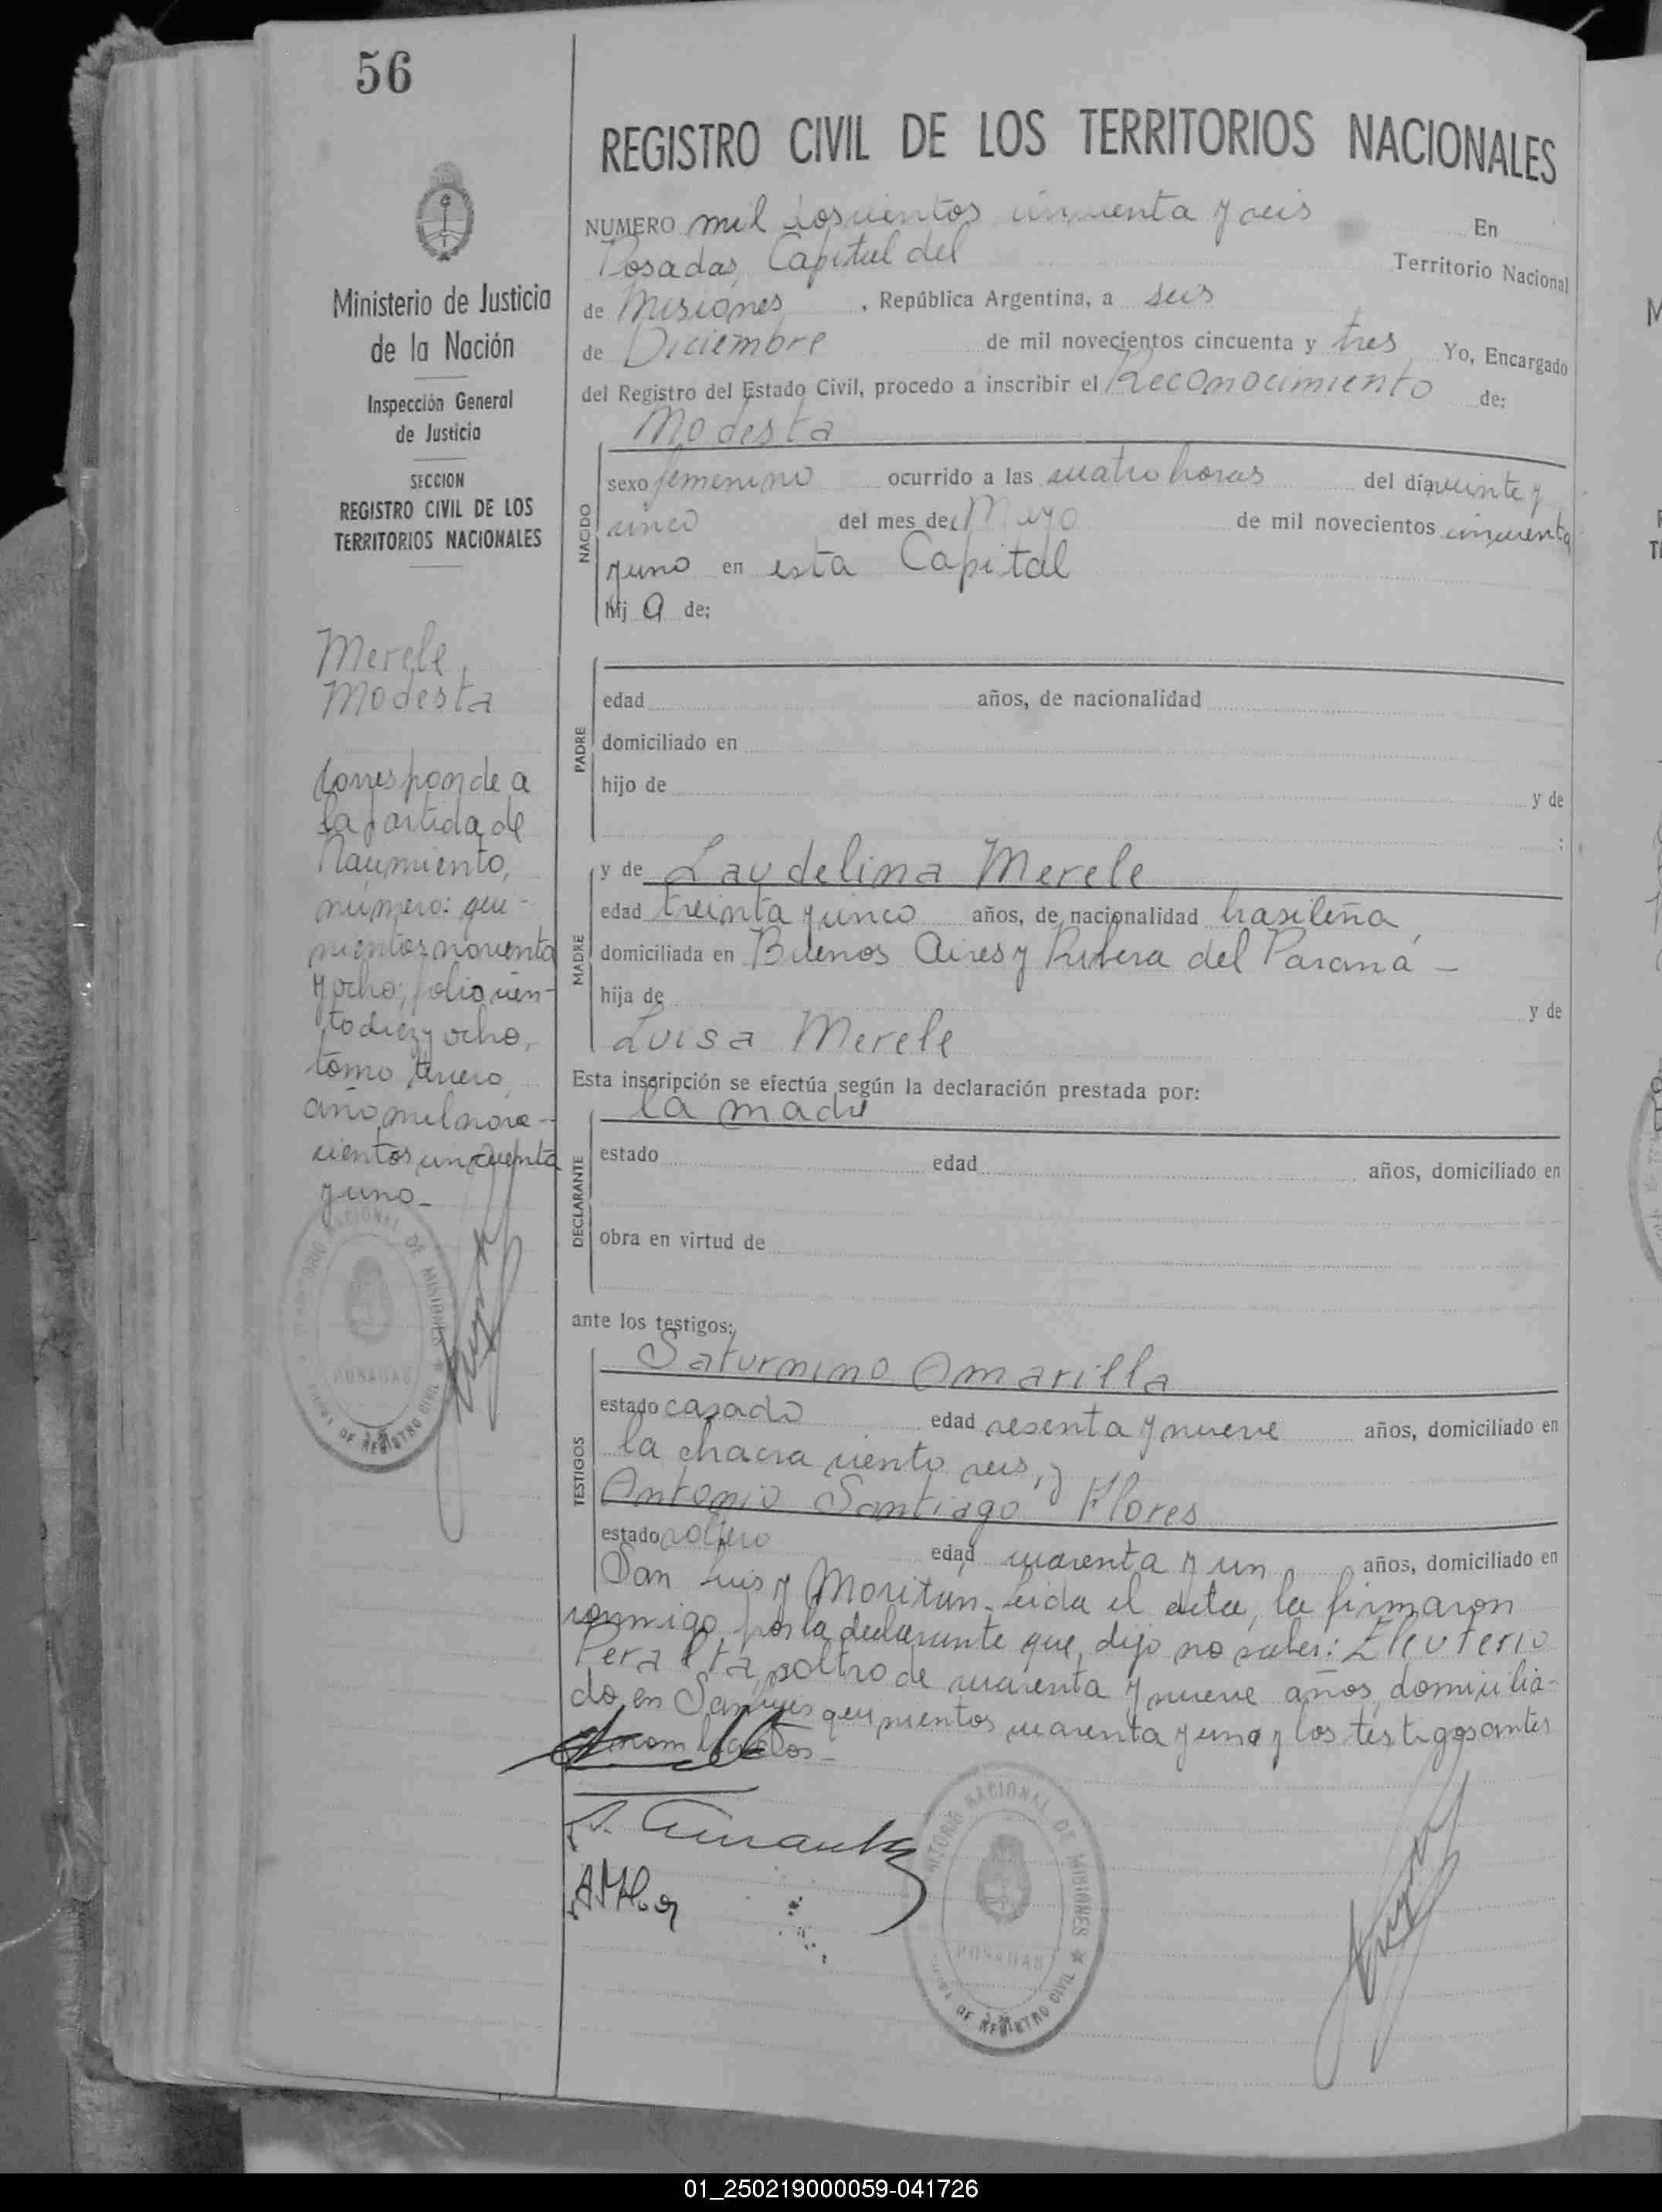 56
REGISTRO CIVIL DE LOS TERRITORIOS NACIONALES
NUMERO mil doscientos cincuenta y seis En
Posadas, Capital del Territorio Nacional
de Misiones, República Argentina, a seis
de Diciembre de mil novecientos cincuenta y tres Yo, Encargado
del Registro del Estado Civil, procedo a inscribir el Reconocimiento de:
Modesta
NACIDO
sexo femenino ocurrido a las cuatro horas del día veinte y
cinco del mes de Mayo de mil novecientos cincuenta
y uno en esta Capital
hij a de:
PADRE
edad años, de nacionalidad
domiciliado en
hijo de y de
;
MADRE
y de Laudelina Merele
edad treinta y cinco años, de nacionalidad brasileña,
domiciliada en Buenos Aires y Ribera del Paraná -
hija de y de
Luisa Merele
Esta inscripción se efectúa según la declaración prestada por:
la madre
DECLARANTE
estado edad años, domiciliado en
obra en virtud de
ante los testigos:
TESTIGOS
Saturnino Amarilla
estado casado edad sesenta y nueve años, domiciliado en
la chacra ciento seis, y
Antonio Santiago Flores
estado soltero edad cuarenta y un años, domiciliado en
San Luis y Moritan. Leida el acta, la firmaron
conmigo por la declarante que dijo no saber: Eleuterio
Peralta, soltro de cuarenta y nueve años, domicilia-
do en San Luis quinientos cuarenta y uno y los testigos antes
nombrados -
Ministerio de Justicia
de la Nación
Inspección General
de Justicia
SECCION
REGISTRO CIVIL DE LOS
TERRITORIOS NACIONALES
Merele,
Modesta
Corresponde a
la partida de
Nacimiento,
número: qui-
nientos noventa
y ocho; folio cien-
to diez y ocho,
tomo tercero,
año mil nove-
cientos cincuenta
y uno -
NACIONAL DE MISIONES
POSADAS
DE REGISTRO CIVIL
TERRITORIO NACIONAL DE MISIONES
POSADAS
DE REGISTRO CIVIL
01_250219000059-041726